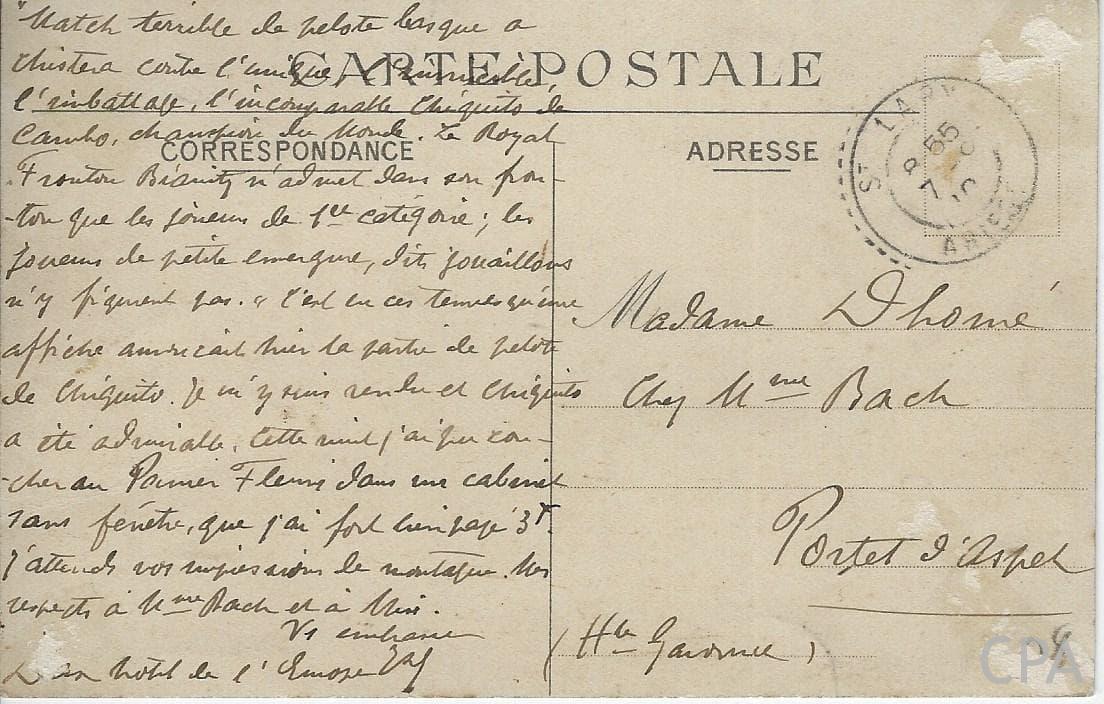 "Match terrible de pelote basque a
CARTE POSTALE
chistera contre l'unique, l'
l'imbattable, l'incomparable Chiquito de
Cambo, champion du Monde. Le Royal
CORRESPONDANCE
Fronton Biarritz n'admet dans son fron-
-ton que les joueurs de 1re catégorie ; les
joueurs de petite emergure, dits jouaillons
n'y figurent pas. " C'est en ces termes qu'une
affiche annonçait hier la partie de pelote
de Chiquito. Je m'y suis rendu et Chiquito
a été admirable. Cette nuit j'ai pu cou-
-cher au Panier Fleuri dans un cabinet
sans fenêtre, que j'ai fort bien payé 3f.
J'attends vos impressions de montagne. Mes
respects à Mme Bach et à Mimi.
Vs embrasse
hôtel de l'Europe
ADRESSE
ST LARY
ARIEGE
Madame Dhomé
Chez Mme Bach
Portet d'Aspet
(Hte Garonne)
CPA